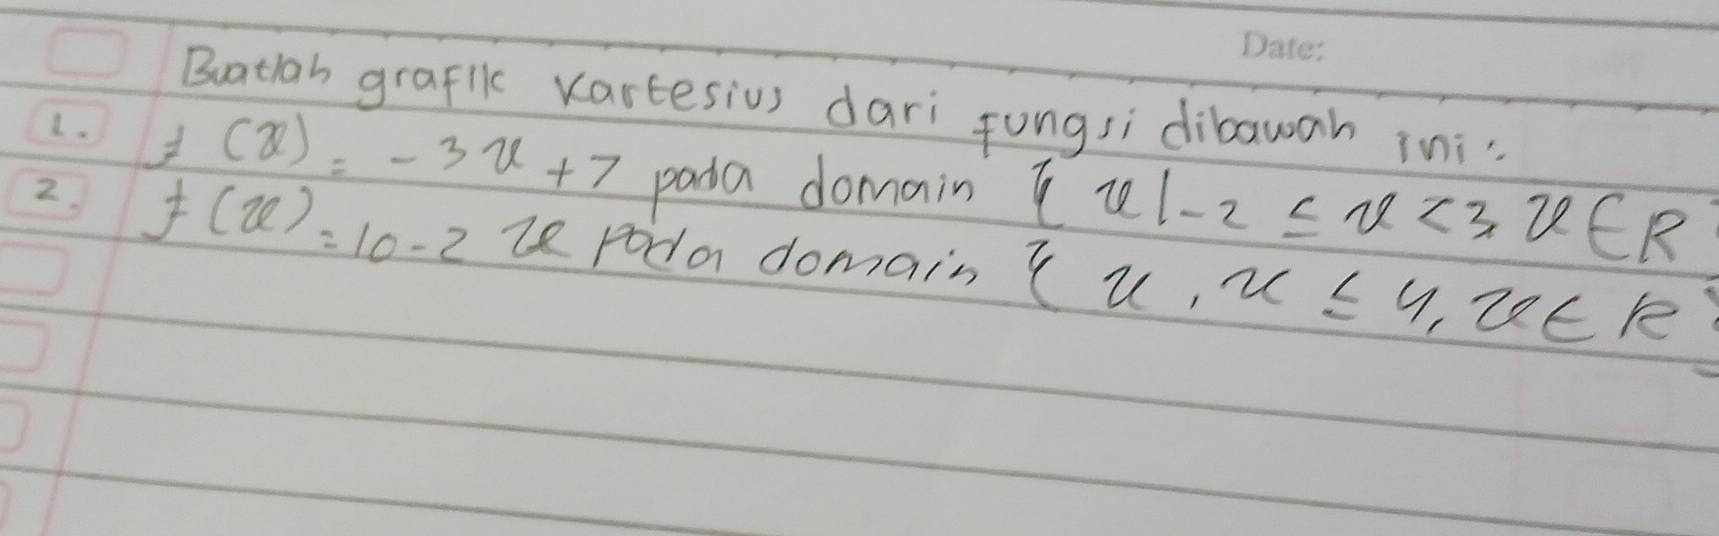 Date:
Buatlah grafik kartesius dari fungsi dibawah ini:
1. f(x) = -3x + 7 pada domain { x | -2 ≤ x < 3, x ∈ R
2. f(x) = 10 - 2x pada domain { x, x ≤ 4, x ∈ R }